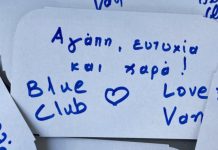 Van
Αγάπη, ευτυχία
και χαρά!
Blue Love
Club Van